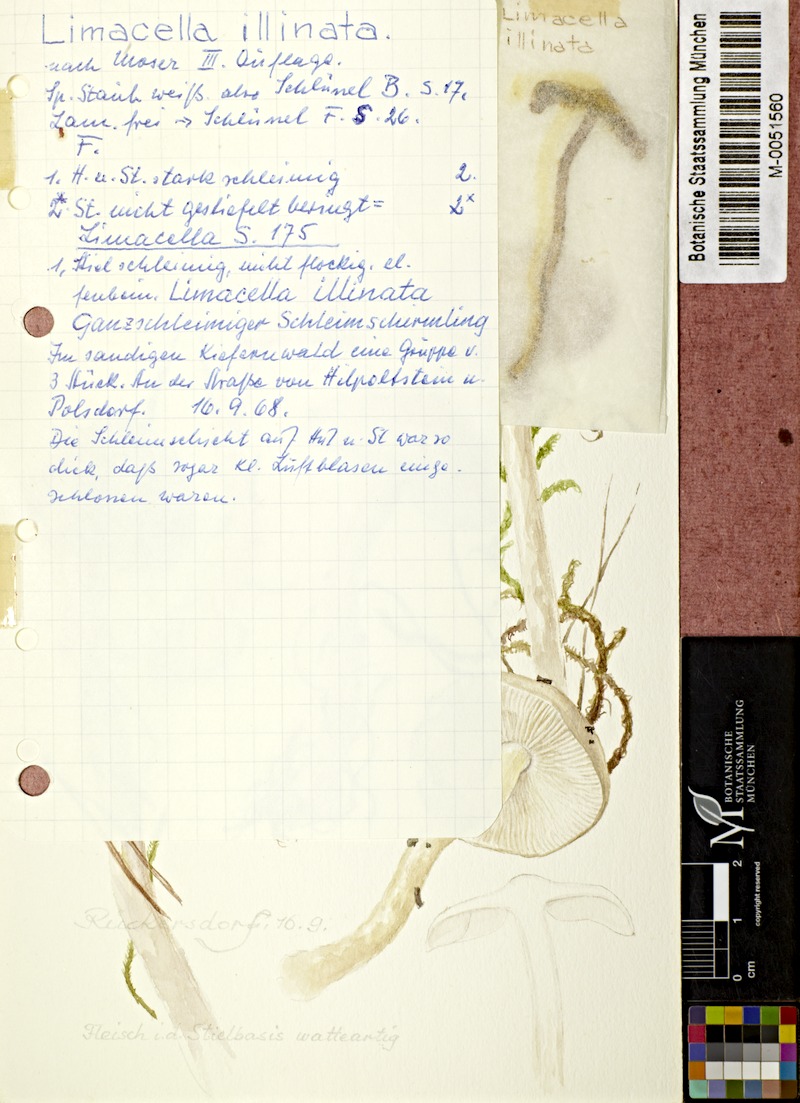 Limacella illinata.
nach Moser III. Auflage.
Sp. Staub weiß also Schlüssel B. S. 17.
Lam. frei → Schlüssel F. S. 26.
F.
1. H. u. St. stark schleimig 2.
2* St. nicht gestiefelt beringt = 2*
Limacella S. 175
1, Stiel schleimig, nicht flockig. el-
fenbein. Limacella illinata
Ganzschleimiger Schleimschirmling
Im sandigen Kiefernwald eine Gruppe v.
3 Stück. An der Straße von Hilpoltstein n.
Polsdorf. 16. 9. 68.
Die Schleimschicht auf Hut u. St war so
dick, daß sogar kl. Luftblasen einge-
schlossen waren.
Limacella
illinata
Botanische Staatssammlung München
M-0051560
BOTANISCHE
STAATSSAMMLUNG
MÜNCHEN
copyright reserved
0 1 2
cm
Rückersdorf. 16. 9.
Fleisch i. d. Stielbasis watteartig